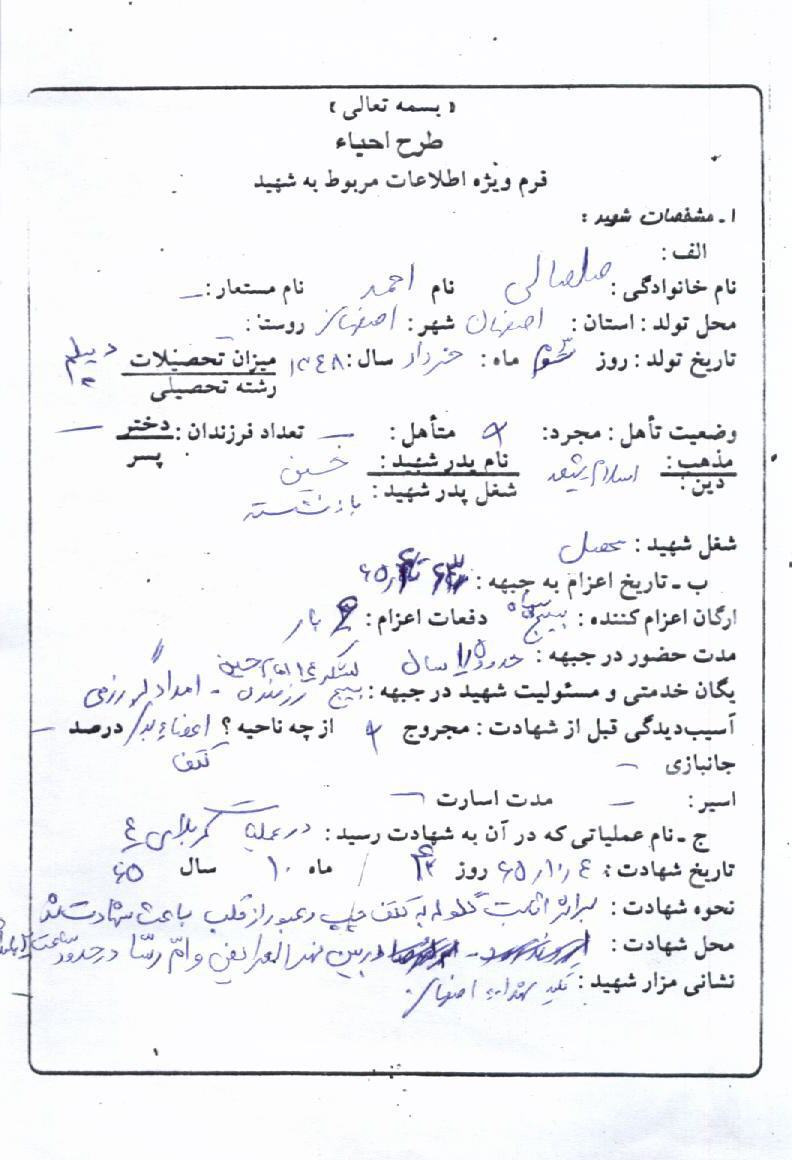 « بسمه تعالی »
طرح احیاء
فرم ویژه اطلاعات مربوط به شهید
۱ ـ مشخصات شهید :
الف :
نام خانوادگی : صلصالی نام احمد نام مستعار : ـ
محل تولد : استان : اصفهان شهر : اصفهان روستا : ـ
تاریخ تولد : روز ماه : خرداد سال : ۱۳۴۸ میزان تحصیلات دیپلم
رشته تحصیلی
وضعیت تأهل : مجرد : متأهل : ـ تعداد فرزندان : دختر ـ
پسر
مذهب : اسلام شیعه نام پدر شهید : حسین
دین : شغل پدر شهید : بازنشسته
شغل شهید : محصل
ب ـ تاریخ اعزام به جبهه : ۶۵
ارگان اعزام کننده : بسیج سپاه دفعات اعزام : بار
مدت حضور در جبهه : حدود سال لشکر ۱۴ امام حسین
یگان خدمتی و مسئولیت شهید در جبهه : بسیج رزمندگان - امدادگر رزمی
آسیب‌دیدگی قبل از شهادت : مجروح از چه ناحیه ؟ درصد ـ
جانبازی ـ کتف
اسیر : ـ مدت اسارت ـ
ج ـ نام عملیاتی که در آن به شهادت رسید : در عملیات کربلای ۴
تاریخ شهادت : ۴ ر ۱۰ ر ۶۵ روز ۴ ماه ۱۰ سال ۶۵
نحوه شهادت : براثر اثابت گلوله به کتف چپ و عبور از قلب باعث شهادت شد
محل شهادت : در بین نهر العرایض و ام رسا در حدود ساعت
نشانی مزار شهید : شهداء اصفهان